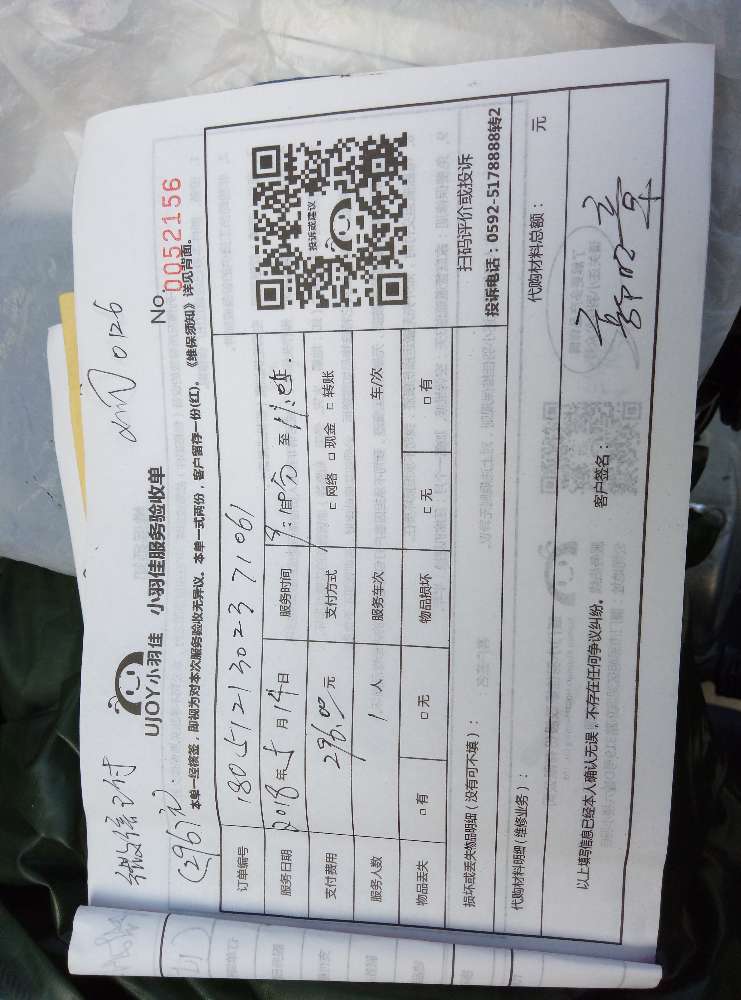 微信支付
(296元)
0126
UJOY小羽佳 小羽佳服务验收单
No. 0052156
本单一经核签，即视为对本次服务验收无异议。本单一式两份，客户留存一份(红)。《维保须知》详见背面。
订单编号 18051213023 71061
服务日期 2018年5月14日 服务时间 至
支付费用 296.00元 支付方式 □网络 □现金 □转账
服务人数 1人 服务车次 车/次
物品丢失 □有 □无 物品损坏 □无 □有
投诉或建议
扫码评价或投诉
投诉电话：0592-5178888转2
损坏或丢失物品明细（没有可不填）：
代购材料明细（维修业务）：
代购材料总额： 元
以上填写信息已经本人确认无误，不存在任何争议纠纷。
客户签名：